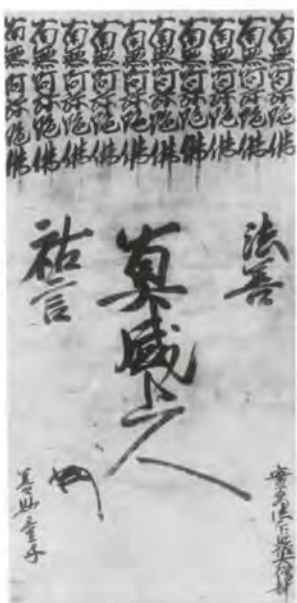 南無阿弥陀佛
南無阿弥陀佛
南無阿弥陀佛
南無阿弥陀佛
南無阿弥陀佛
南無阿弥陀佛
南無阿弥陀佛
南無阿弥陀佛
南無阿弥陀佛
南無阿弥陀佛
法善
真盛上人
祐言
童子